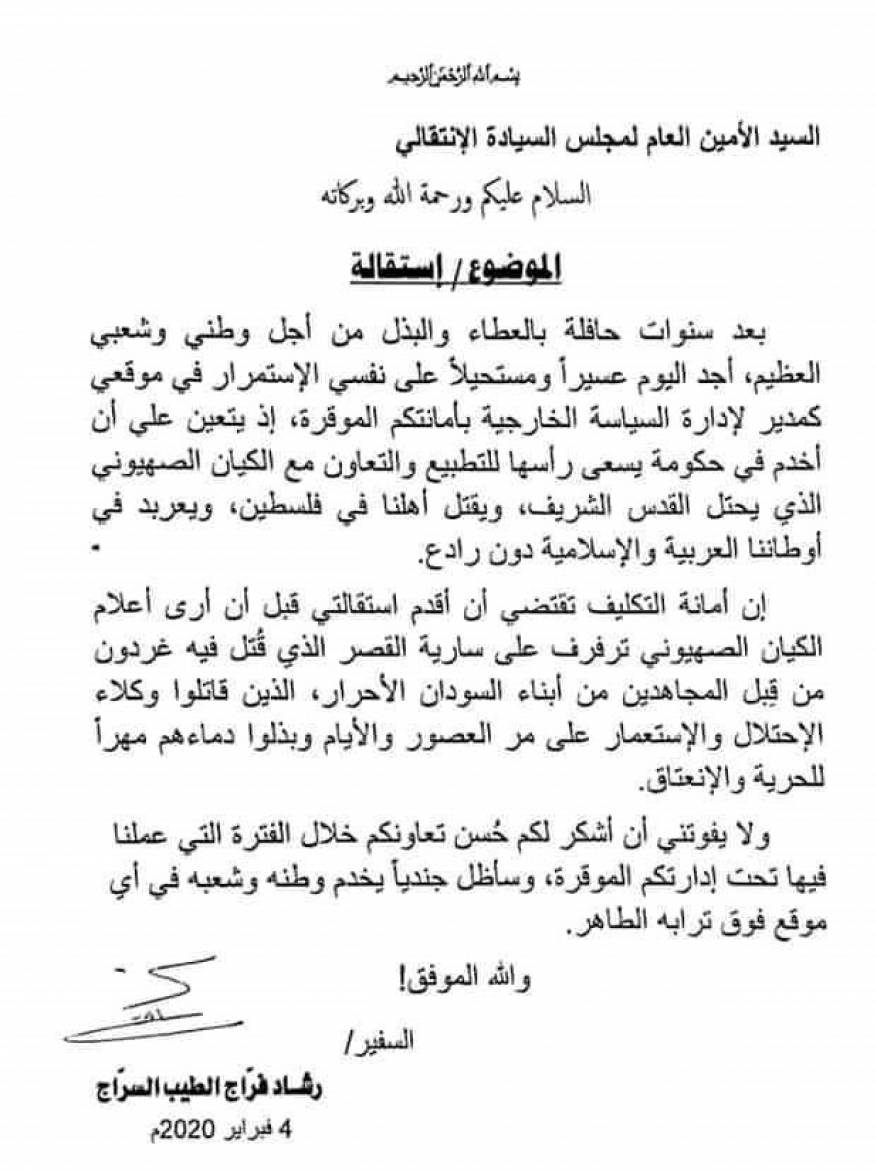 بسم الله الرحمن الرحيم
السيد الأمين العام لمجلس السيادة الإنتقالي
السلام عليكم ورحمة الله وبركاته
الموضوع/ إستقالة
بعد سنوات حافلة بالعطاء والبذل من أجل وطني وشعبي
العظيم، أجد اليوم عسيراً ومستحيلاً على نفسي الإستمرار في موقعي
كمدير لإدارة السياسة الخارجية بأمانتكم الموقرة، إذ يتعين علي أن
أخدم في حكومة يسعى رأسها للتطبيع والتعاون مع الكيان الصهيوني
الذي يحتل القدس الشريف، ويقتل أهلنا في فلسطين، ويعربد في
أوطاننا العربية والإسلامية دون رادع.
إن أمانة التكليف تقتضي أن أقدم استقالتي قبل أن أرى أعلام
الكيان الصهيوني ترفرف على سارية القصر الذي قُتل فيه غردون
من قِبل المجاهدين من أبناء السودان الأحرار، الذين قاتلوا وكلاء
الإحتلال والإستعمار على مر العصور والأيام وبذلوا دماءهم مهراً
للحرية والإنعتاق.
ولا يفوتني أن أشكر لكم حُسن تعاونكم خلال الفترة التي عملنا
فيها تحت إدارتكم الموقرة، وسأظل جندياً يخدم وطنه وشعبه في أي
موقع فوق ترابه الطاهر.
والله الموفق!
السفير/
رشاد فرّاج الطيب السرّاج
4 فبراير 2020م